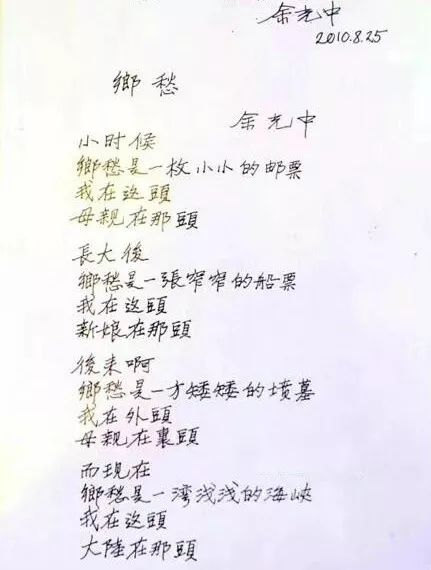 余光中
2010.8.25
鄉愁
余光中
小时候
鄉愁是一枚小小的邮票
我在这頭
母親在那頭
長大後
鄉愁是一張窄窄的船票
我在这頭
新娘在那頭
後来啊
鄉愁是一方矮矮的墳墓
我在外頭
母親在裏頭
而現在
鄉愁是一湾浅浅的海峡
我在这頭
大陸在那頭